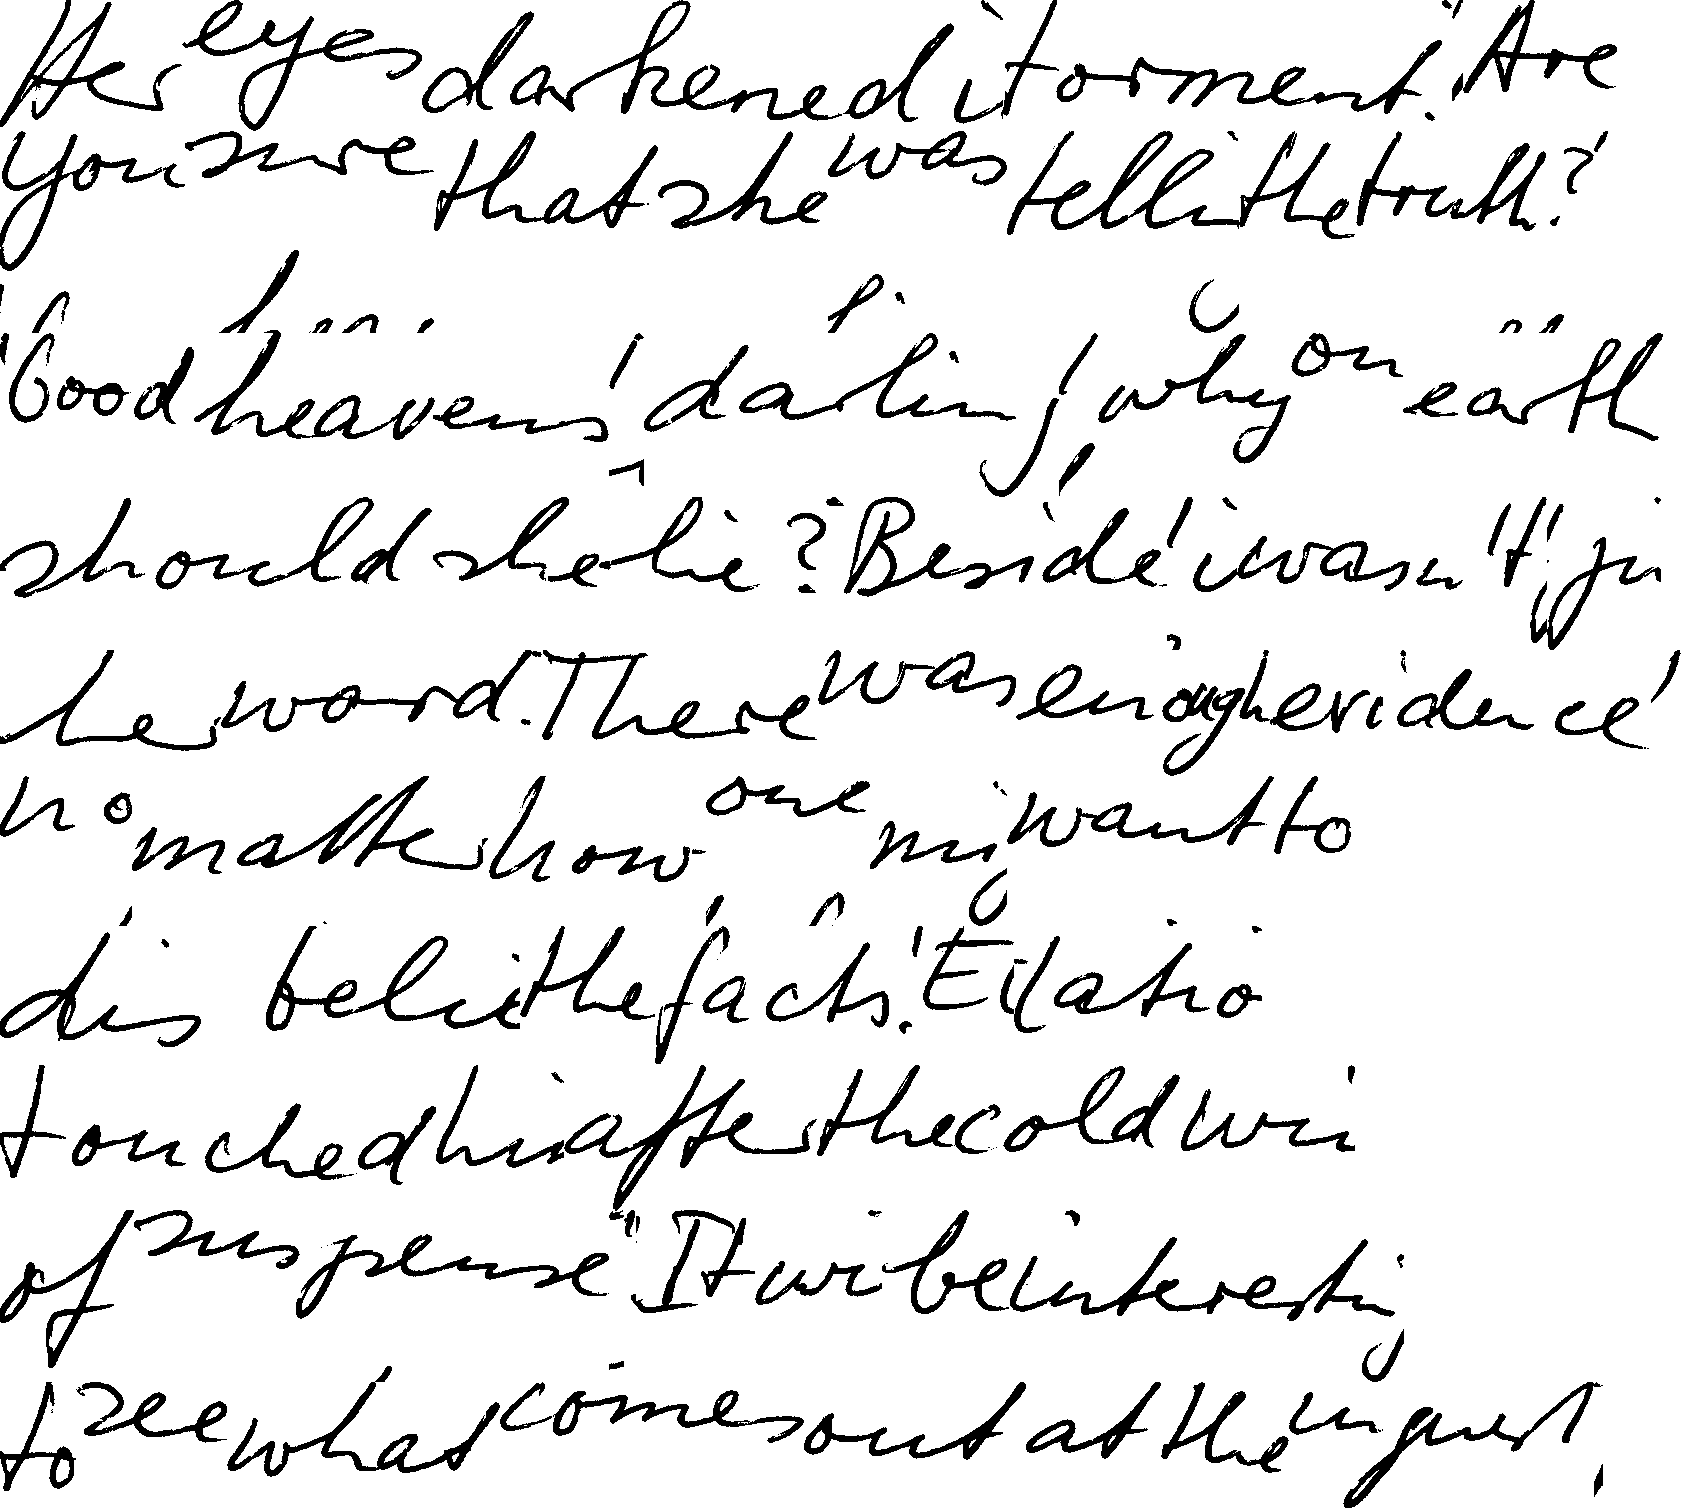 Her eyes darkened i torment. "Are
you sure that she was telli the truth?'
'Good heavens' darling' why on earth
should she lie? Beside' i wasn't' ju
he word. There was enough evidence'
no matter how one mig want to
dis belie the facts.' Exlatio
touched hi after the cold win
of suspense. "It wi be interestin
to see what comes out at the inquest.